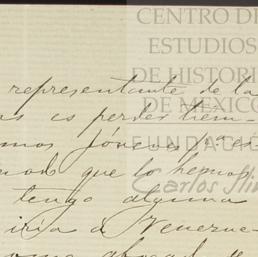 CENTRO DE
ESTUDIOS
DE HISTORIA
DE MÉXICO
FUNDACIÓN
Carlos Slim
representante de la
as es perder tiem-
mos jóvenes pa es
que lo hemos
tengo alguna
iría a Venezue-